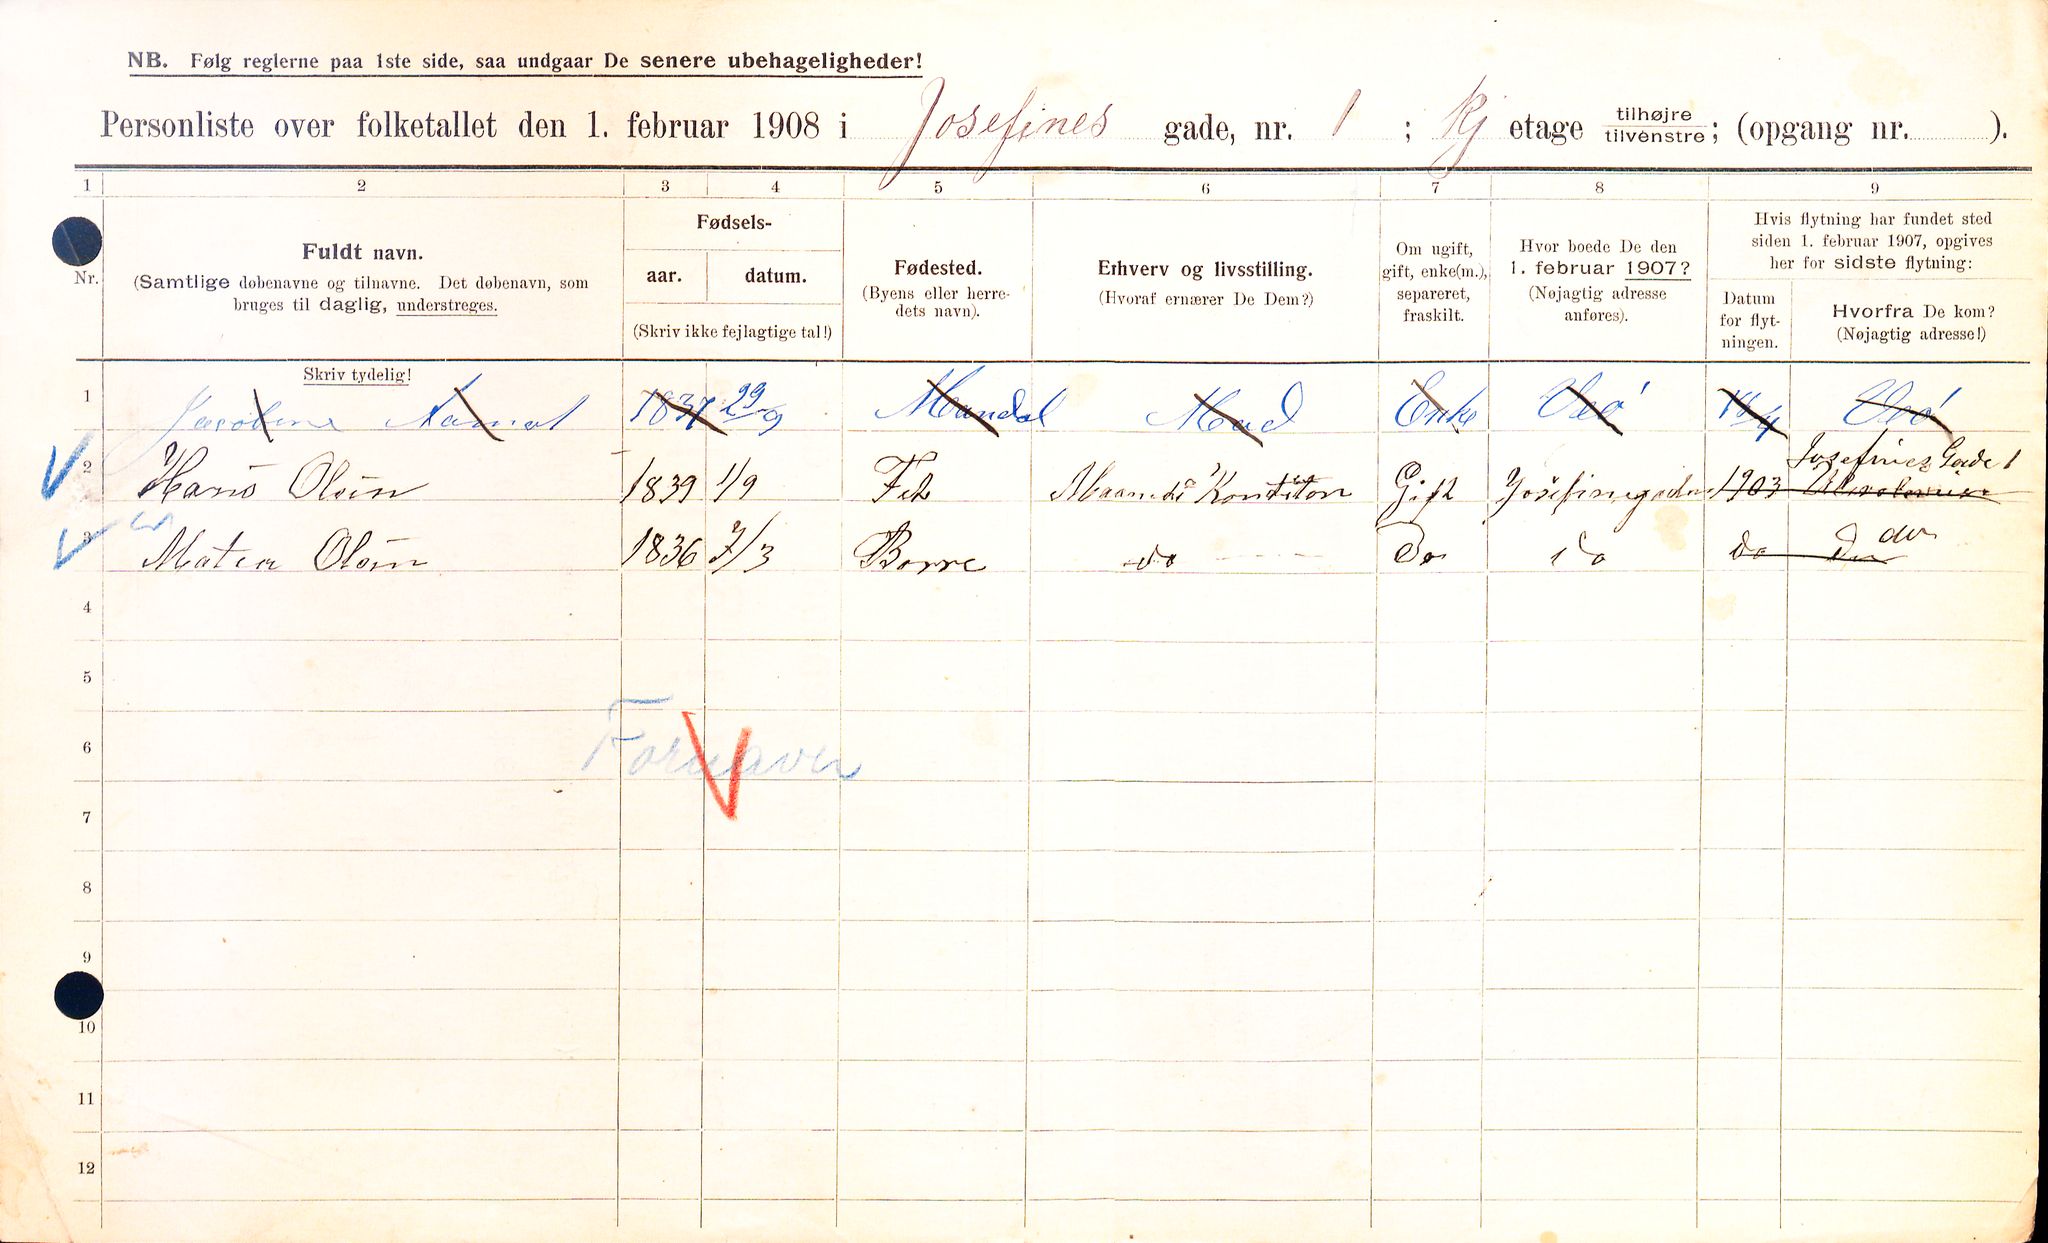 NB. Følg reglerne paa 1ste side, saa undgaar De senere ubehageligheder!
Personliste over folketallet den 1. februar 1908 i Josefines gade, nr. 1 ; Kj etage tilhøjre tilvenstre; (opgang nr. ).
1 2 3 4 5 6 7 8 9
Nr.
Fuldt navn.
(Samtlige døbenavne og tilnavne. Det døbenavn, som
bruges til daglig, understreges.
Skriv tydelig!
Fødsels-
aar. datum.
(Skriv ikke fejlagtige tal!)
Fødested.
(Byens eller herre-
dets navn).
Erhverv og livsstilling.
(Hvoraf ernærer De Dem?)
Om ugift,
gift, enke(m.),
separeret,
fraskilt.
Hvor boede De den
1. februar 1907?
(Nøjagtig adresse
anføres).
Hvis flytning har fundet sted
siden 1. februar 1907, opgives
her for sidste flytning:
Datum
for flyt-
ningen.
Hvorfra De kom?
(Nøjagtig adresse!)
1 Jacobine 1837 29/9 Mandal Enke
2 Hans Olsen 1839 1/9 Fet Gift Josefinegaden 1903 Josefines Gade 1
3 Matea Olsen 1836 7/3 Borre do Do do do do
4
5
6
7
8
9
10
11
12